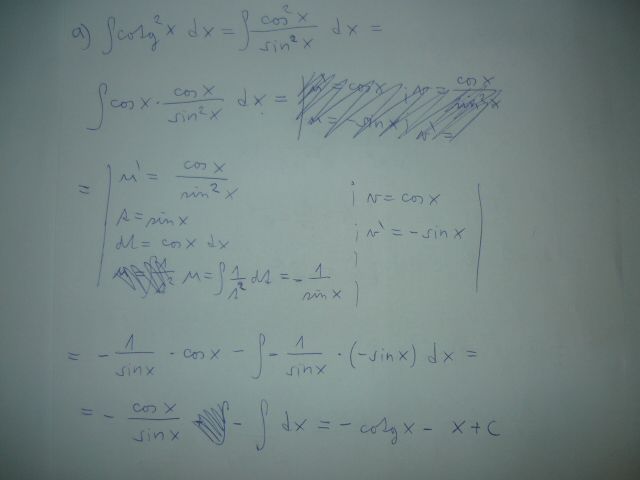 a) ∫cotg²x dx = ∫ cos²x / sin²x dx =
∫ cosx · cosx / sin²x dx =
= | u' = cosx / sin²x ; v = cosx |
s = sinx ; v' = -sinx
ds = cosx dx
u = ∫ 1/s² ds = - 1/sinx
= - 1/sinx · cosx - ∫ - 1/sinx · (-sinx) dx =
= - cosx/sinx - ∫ dx = - cotgx - x + C